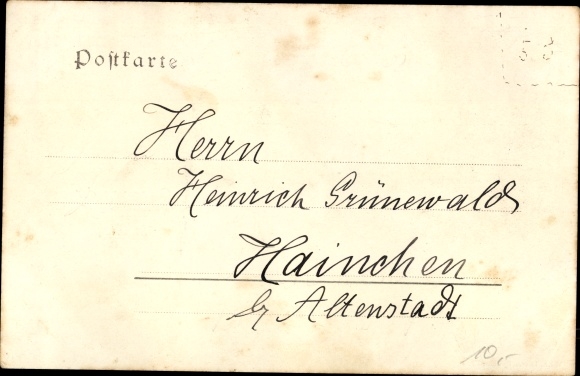 Postkarte
Herrn
Heinrich Grünewald
Hainchen
b/ Altenstadt
10,-